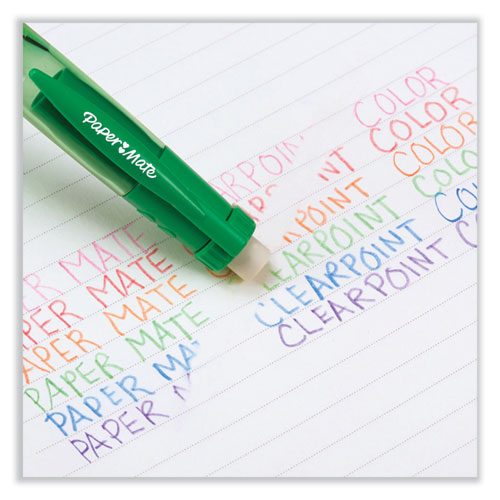 Paper Mate
PAPER MATE EARPOIN COLOR
PAPER MATE POINT COLOR
APER MATE POINT COLOR
PAPER MATE LEARPOINT COLO
PAPER MATE CLEARPOINT COL
PAPER MATE CLEARPOINT CO